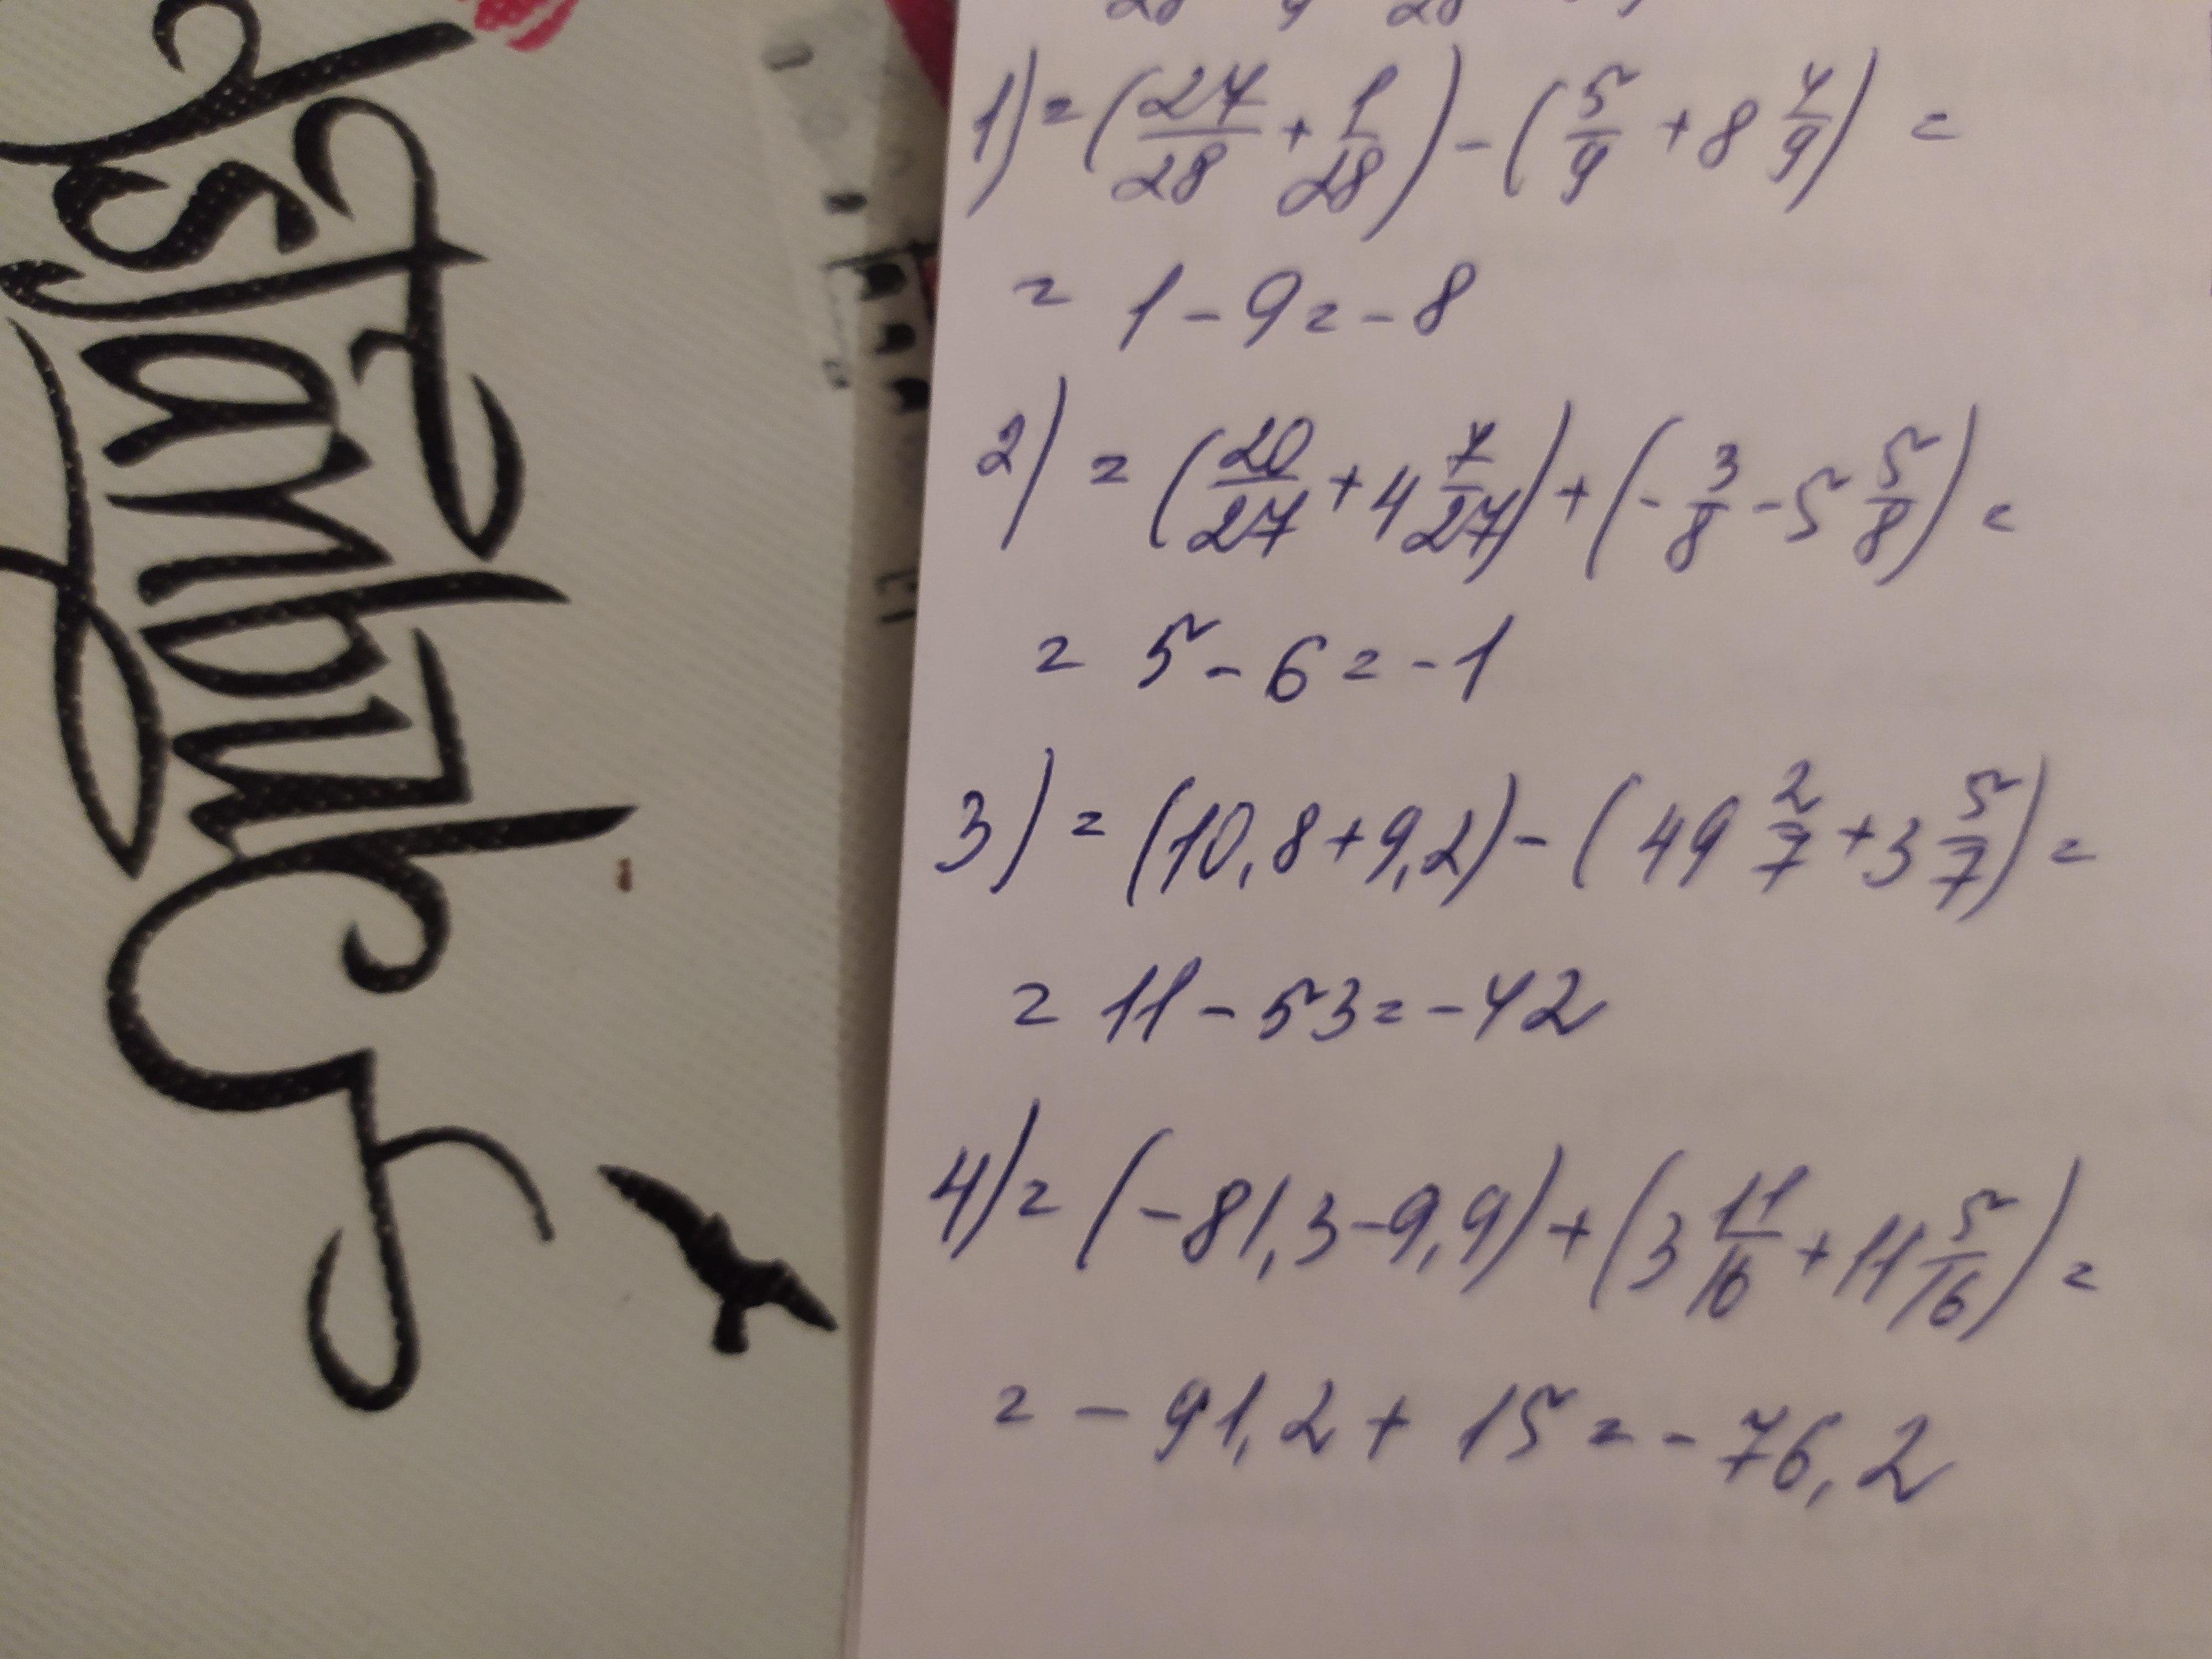 istanbul
1) = (27/28 + 1/28) - (5/9 + 8 4/9) =
= 1 - 9 = - 8
2) = (20/27 + 4 7/27) + (- 3/8 - 5 5/8) =
= 5 - 6 = - 1
3) = (10,8 + 9,2) - (49 2/7 + 3 5/7) =
= 11 - 53 = - 42
4) = (- 81,3 - 9,9) + (3 11/16 + 11 5/16) =
= - 91,2 + 15 = - 76,2